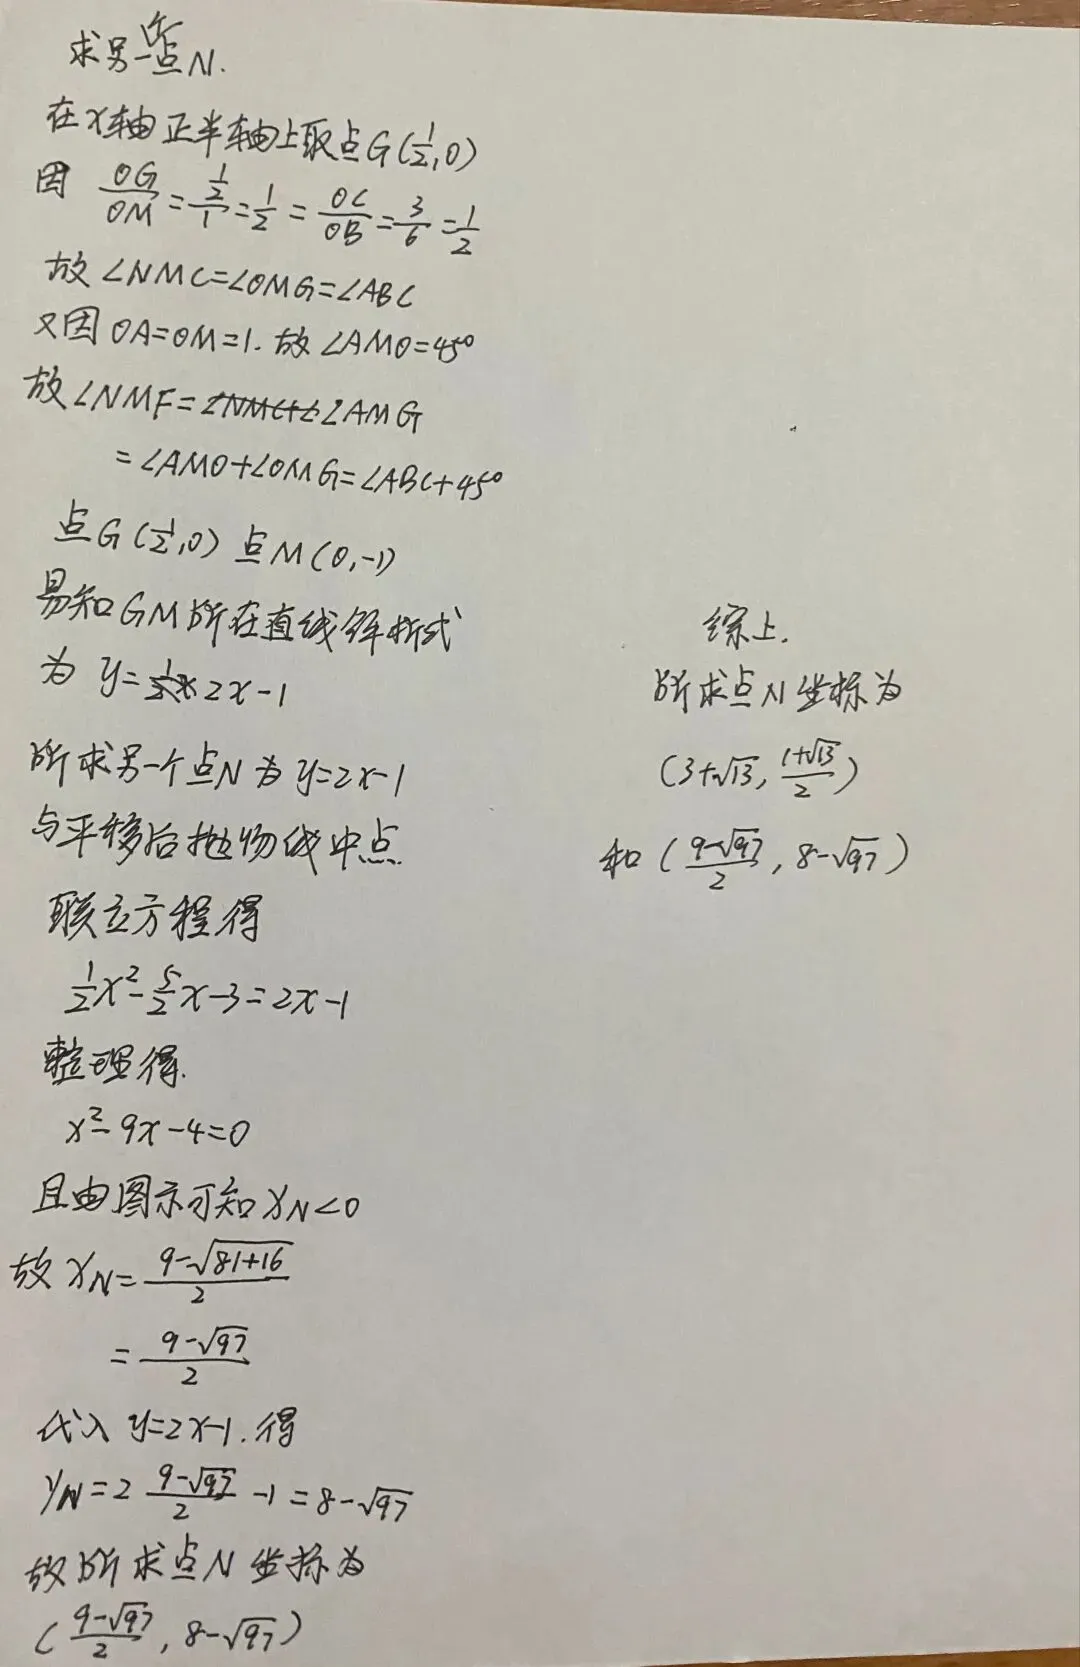 求另一个点N.
在x轴正半轴上取点G(1/2,0)
因 OG/OM = (1/2)/1 = 1/2 = OC/OB = 3/6 = 1/2
故∠NMC=∠OMG=∠ABC
又因OA=OM=1.故∠AMO=45°
故∠NMF=∠AMG
=∠AMO+∠OMG=∠ABC+45°
点G(1/2,0) 点M(0,-1)
易知GM所在直线解析式
为 y=2x-1
所求另一个点N为y=2x-1
与平移后抛物线中点.
联立方程得
1/2x²-5/2x-3=2x-1
整理得.
x²-9x-4=0
且由图示可知xN<0
故xN=(9-√(81+16))/2
=(9-√97)/2
代入y=2x-1.得
yN=2 (9-√97)/2 -1=8-√97
故所求点N坐标为
((9-√97)/2, 8-√97)
综上.
所求点N坐标为
(3+√13, (1+√13)/2)
和((9-√97)/2, 8-√97)